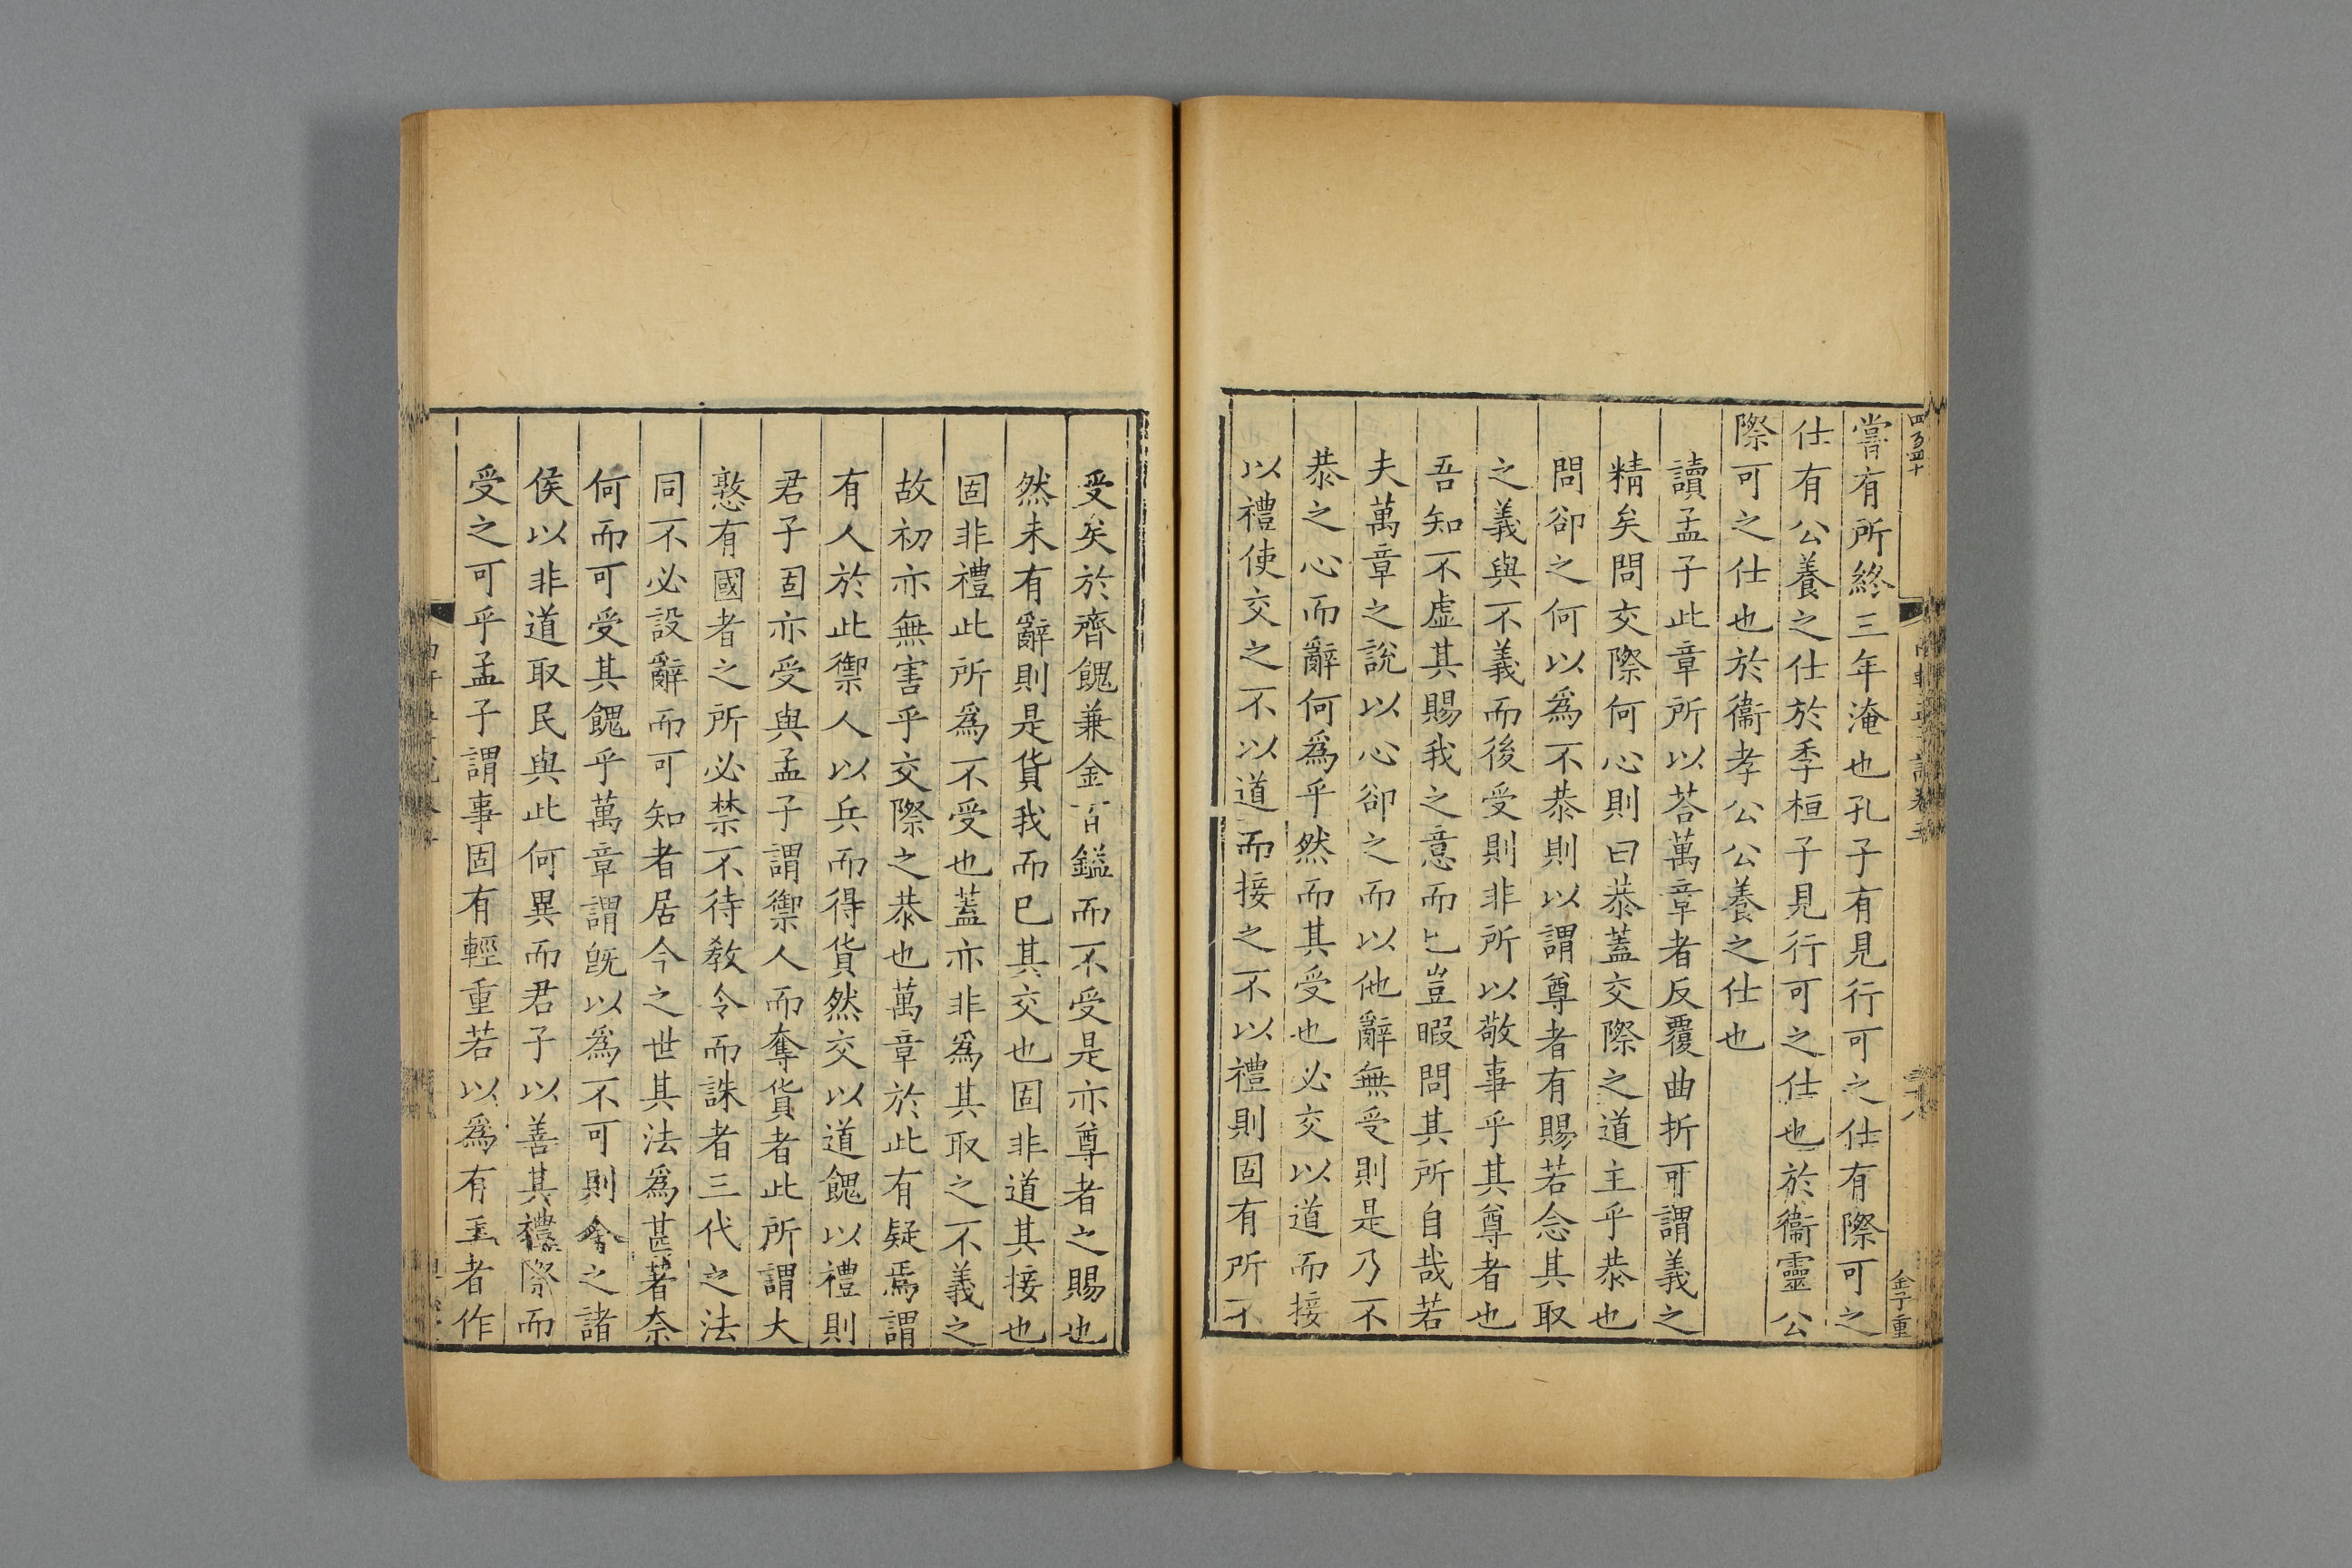 嘗有所終三年淹也孔子有見行可之仕有際可之
仕有公養之仕於季桓子見行可之仕也於衞靈公
際可之仕也於衞孝公公養之仕也
讀孟子此章所以荅萬章者反覆曲折可謂義之
精矣問交際何心則曰恭蓋交際之道主乎恭也
問卻之何以爲不恭則以謂尊者有賜若念其取
之義與不義而後受則非所以敬事乎其尊者也
吾知不虚其賜我之意而已豈暇問其所自哉若
夫萬章之說以心卻之而以他辭無受則是乃不
恭之心而辭何爲乎然而其受也必交以道而接
以禮使交之不以道而接之不以禮則固有所不
受矣於齊餽兼金百鎰而不受是亦尊者之賜也
然未有辭則是貨我而已其交也固非道其接也
固非禮此所爲不受也蓋亦非爲其取之不義之
故初亦無害乎交際之恭也萬章於此有疑焉謂
有人於此禦人以兵而得貨然交以道餽以禮則
君子固亦受與孟子謂禦人而奪貨者此所謂大
憝有國者之所必禁不待教令而誅者三代之法
同不必設辭而可知者居今之世其法爲甚著奈
何而可受其餽乎萬章謂旣以爲不可則今之諸
侯以非道取民與此何異而君子以善其禮際而
受之可乎孟子謂事固有輕重若以爲有王者作
金子重